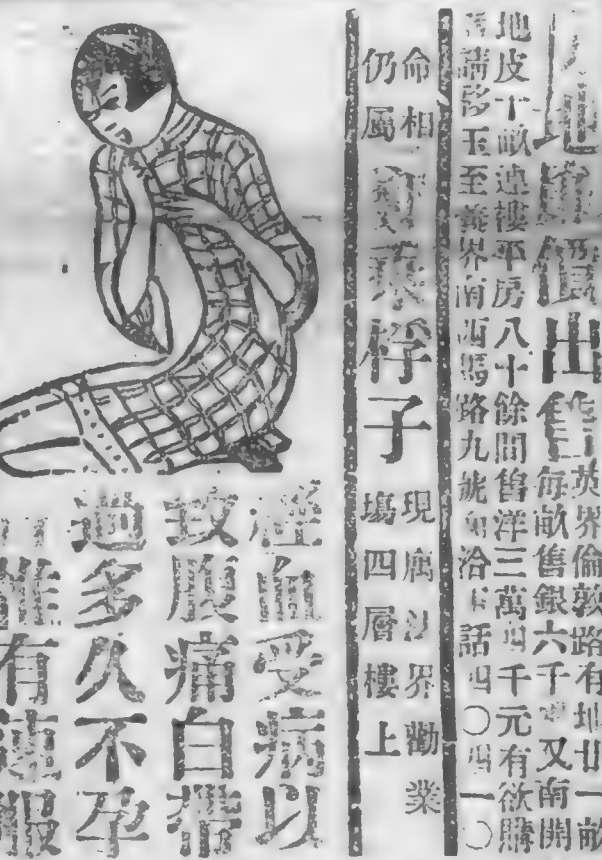 地廉價出售
英界倫敦路有地廿一畝
每畝售銀六千 又南開
地皮十畝連樓平房八十餘間售洋三萬四千元有欲購
請移玉至義界南西馬路九號 洽 話四〇四一〇
命相
仍屬
子
現 界勸業
塲四層樓上
經血受病以
致腹痛白帶
過多久不孕
惟有速服